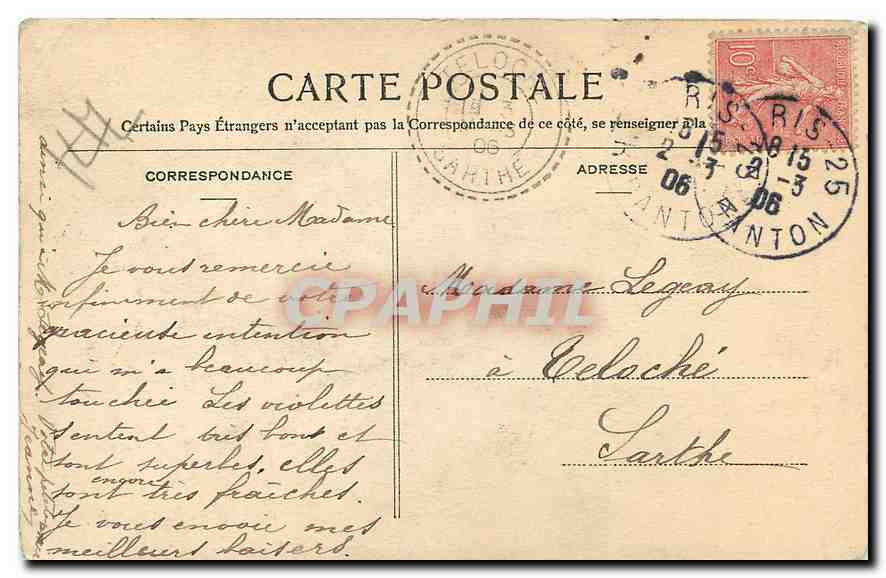 CARTE POSTALE
Certains Pays Étrangers n'acceptant pas la Correspondance de ce côté, se renseigner à la
CORRESPONDANCE
ADRESSE
Bien chère Madame
Je vous remercie
infiniment de votre
gracieuse intention
qui m'a beaucoup
touchée Les violettes
sentent très bons et
sont superbes, elles
sont encore très fraîches.
Je vous envoie mes
meilleurs baisers.
ainsi qu'à Mr Legeay.
Jeanne
Madame Legeay
à Teloché
Sarthe
TELOC
3
06
SARTHE
RIS-25
8 15
2 -3
06
DANTON
RIS 25
8 15
2 -3
06
DANTON
10 c
CPAPHIL